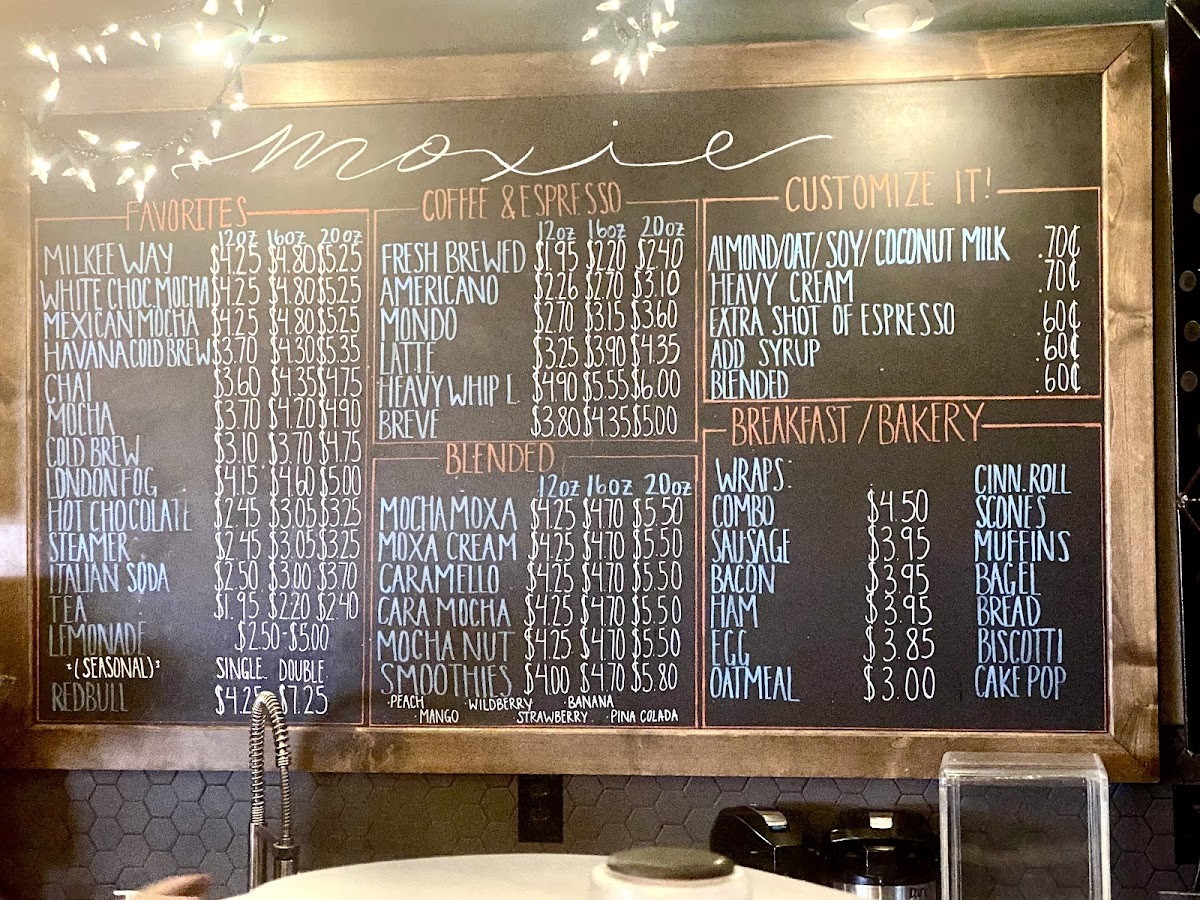 moxie
FAVORITES
12oz 16oz 20oz
MILKEE WAY $4.25 $4.80 $5.25
WHITE CHOC. MOCHA $4.25 $4.80 $5.25
MEXICAN MOCHA $4.25 $4.80 $5.25
HAVANA COLD BREW $3.70 $4.30 $5.35
CHAI $3.60 $4.35 $4.75
MOCHA $3.70 $4.20 $4.90
COLD BREW $3.10 $3.70 $4.75
LONDON FOG $4.15 $4.60 $5.00
HOT CHOCOLATE $2.45 $3.05 $3.25
STEAMER $2.45 $3.05 $3.25
ITALIAN SODA $2.50 $3.00 $3.70
TEA $1.95 $2.20 $2.40
LEMONADE $2.50-$5.00
*(SEASONAL)* SINGLE DOUBLE
REDBULL $4.25 $7.25
COFFEE & ESPRESSO
12oz 16oz 20oz
FRESH BREWED $1.95 $2.20 $2.40
AMERICANO $2.26 $2.70 $3.10
MONDO $2.70 $3.15 $3.60
LATTE $3.25 $3.90 $4.35
HEAVY WHIP L. $4.90 $5.55 $6.00
BREVE $3.80 $4.35 $5.00
BLENDED
12oz 16oz 20oz
MOCHA MOXA $4.25 $4.70 $5.50
MOXA CREAM $4.25 $4.70 $5.50
CARAMELLO $4.25 $4.70 $5.50
CARA MOCHA $4.25 $4.70 $5.50
MOCHA NUT $4.25 $4.70 $5.50
SMOOTHIES $4.00 $4.70 $5.80
·PEACH ·WILDBERRY ·BANANA
·MANGO STRAWBERRY ·PINA COLADA
CUSTOMIZE IT!
ALMOND/OAT/SOY/COCONUT MILK .70¢
HEAVY CREAM .70¢
EXTRA SHOT OF ESPRESSO .60¢
ADD SYRUP .60¢
BLENDED .60¢
BREAKFAST/BAKERY
WRAPS: CINN. ROLL
COMBO $4.50 SCONES
SAUSAGE $3.95 MUFFINS
BACON $3.95 BAGEL
HAM $3.95 BREAD
EGG $3.85 BISCOTTI
OATMEAL $3.00 CAKE POP